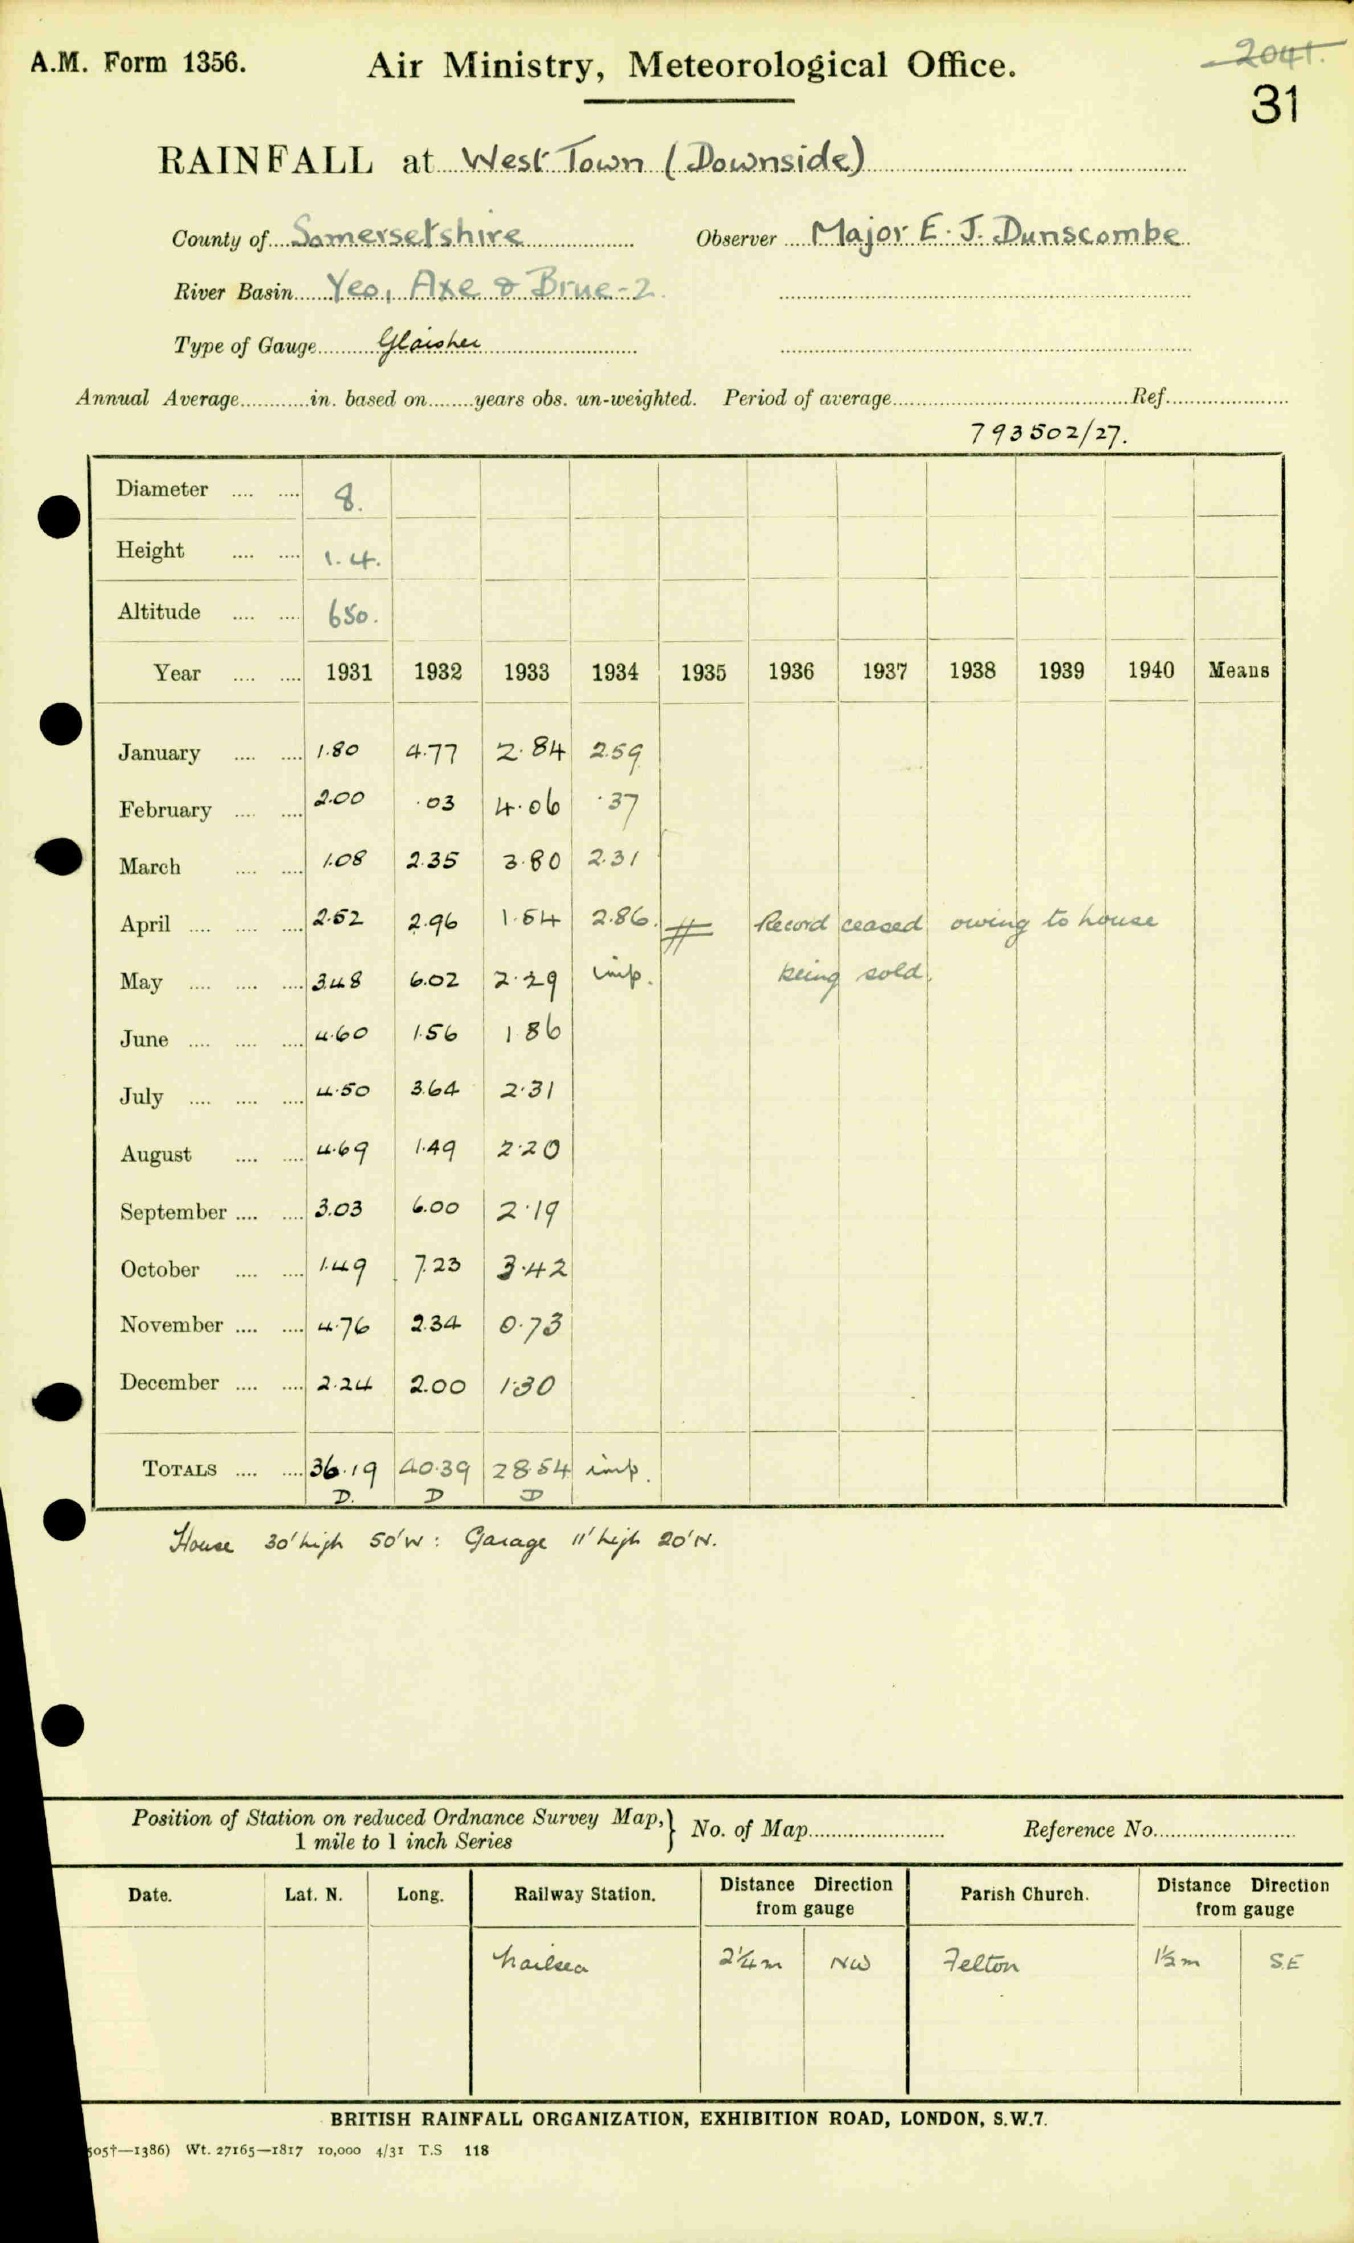 A.M. Form 1356.
Air Ministry, Meteorological Office.
2041.
31
RAINFALL at West Town (Downside)
County of Somersetshire Observer Major E. J. Dunscombe
River Basin Yeo, Axe & Brue-2.
Type of Gauge Glaisher
Annual Average............in. based on........years obs. un-weighted. Period of average........................................Ref.....................
793502/27.
Diameter .... .... 8.
Height .... .... 1.4.
Altitude .... .... 650.
Year .... .... 1931 1932 1933 1934 1935 1936 1937 1938 1939 1940 Means
January .... .... 1.80 4.77 2.84 2.59
February .... .... 2.00 .03 4.06 .37
March .... .... 1.08 2.35 3.80 2.31
April .... .... .... 2.52 2.96 1.54 2.86. Record ceased owing to house
May .... .... .... 3.48 6.02 2.29 imp. being sold.
June .... .... .... 4.60 1.56 1.86
July .... .... .... 4.50 3.64 2.31
August .... .... 4.69 1.49 2.20
September .... .... 3.03 6.00 2.19
October .... .... 1.49 7.23 3.42
November .... .... 4.76 2.34 0.73
December .... .... 2.24 2.00 1.30
TOTALS .... .... 36.19 40.39 28.54 imp.
D. D D
House 30' high 50' W: Garage 11' high 20' N.
Position of Station on reduced Ordnance Survey Map,} No. of Map........................ Reference No.........................
1 mile to 1 inch Series
Date. Lat. N. Long. Railway Station. Distance Direction from gauge Parish Church. Distance Direction from gauge
Nailsea 2¼m NW Felton 1½m S.E
BRITISH RAINFALL ORGANIZATION, EXHIBITION ROAD, LONDON, S.W.7.
505†—1386) Wt. 27165—1817 10,000 4/31 T.S 118